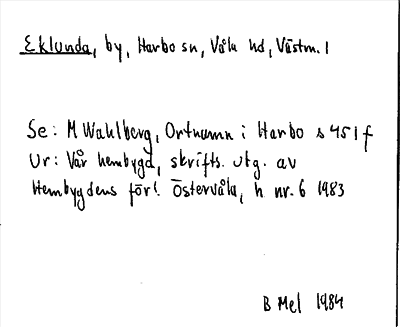 Eklunda, by, Harbo sn, Våla hd, Västm. l
Se: M Wahlberg, Ortnamn i Harbo s 451 f
Ur: Vår hembygd, skrifts. utg. av
Hembygdens förl. Östervåla, h nr. 6 1983
B Mel 1984